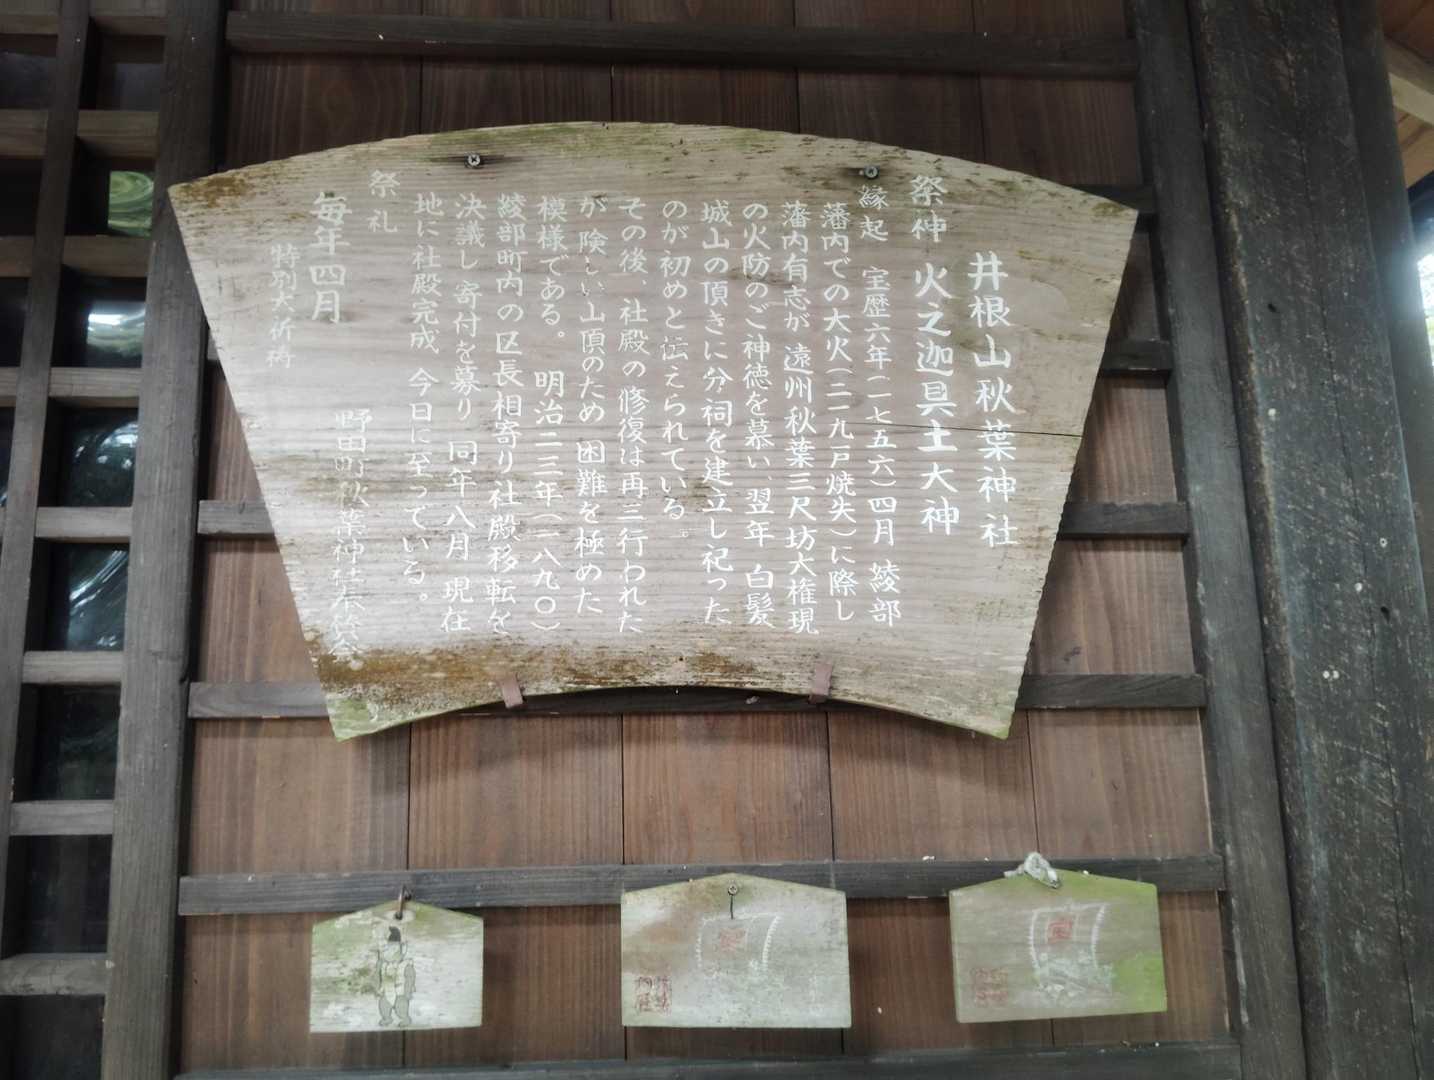 井根山秋葉神社
祭神 火之迦具土大神
縁起 宝歴六年(一七五六)四月 綾部
藩内での大火(二一九戸焼失)に際し
藩内有志が遠州秋葉三尺坊大権現
の火防のご神徳を慕い、翌年 白髪
城山の頂きに分祠を建立し祀った
のが初めと伝えられている。
その後、社殿の修復は再三行われた
が険しい山頂のため 困難を極めた
模様である。 明治二三年(一八九〇)
綾部町内の区長相寄り社殿移転を
決議し寄付を募り 同年八月 現在
地に社殿完成 今日に至っている。
祭礼
毎年四月
特別大祈祷
野田町秋葉神社奉賛会